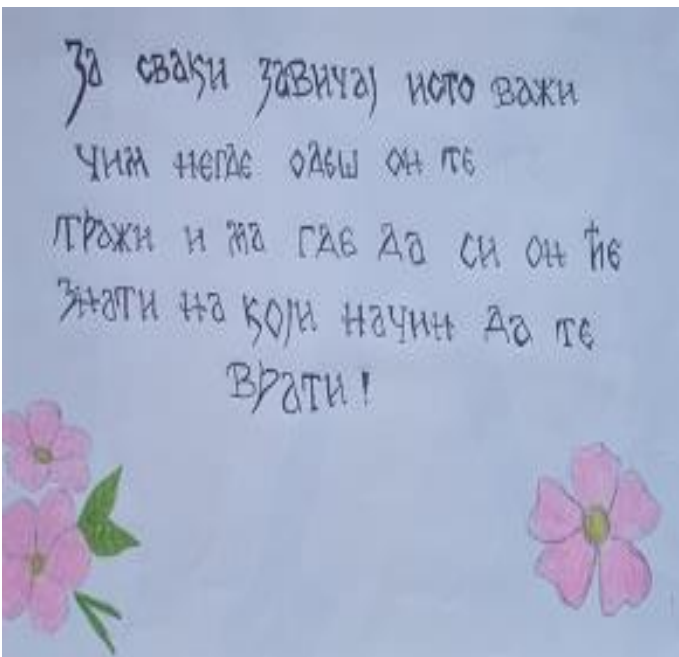 За сваки завичај исто важи
чим негде одеш он те
тражи и ма где да си он ће
знати на који начин да те
врати!